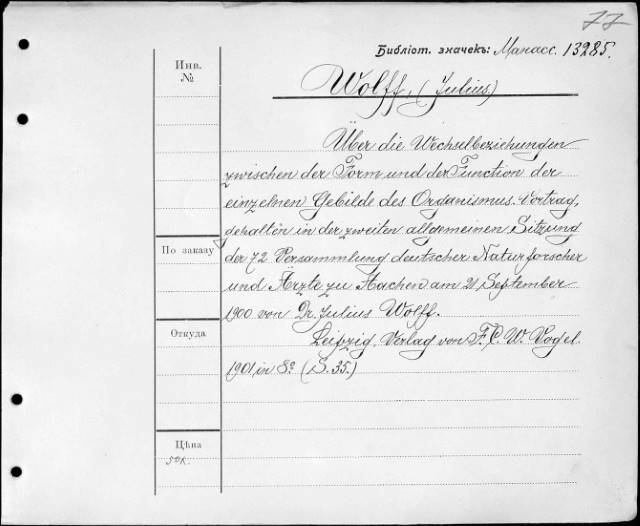 77
Библіот. значекъ: Манасс. 13285.
Инв.
№
Wolff, (Julius)
Über die Wechselbeziehungen
zwischen der Form und der Function der
einzelnen Gebilde des Organismus. Vortrag,
gehalten in der zweiten allgemeinen Sitzung
По заказу
der 72. Versammlung deutscher Naturforscher
und Ärzte zu Aachen am 21 September
1900 von Dr. Julius Wolff.
Откуда
Leipzig, Verlag von F. C. W. Vogel
1901 in 8º (S. 35.)
Цѣна
50к.